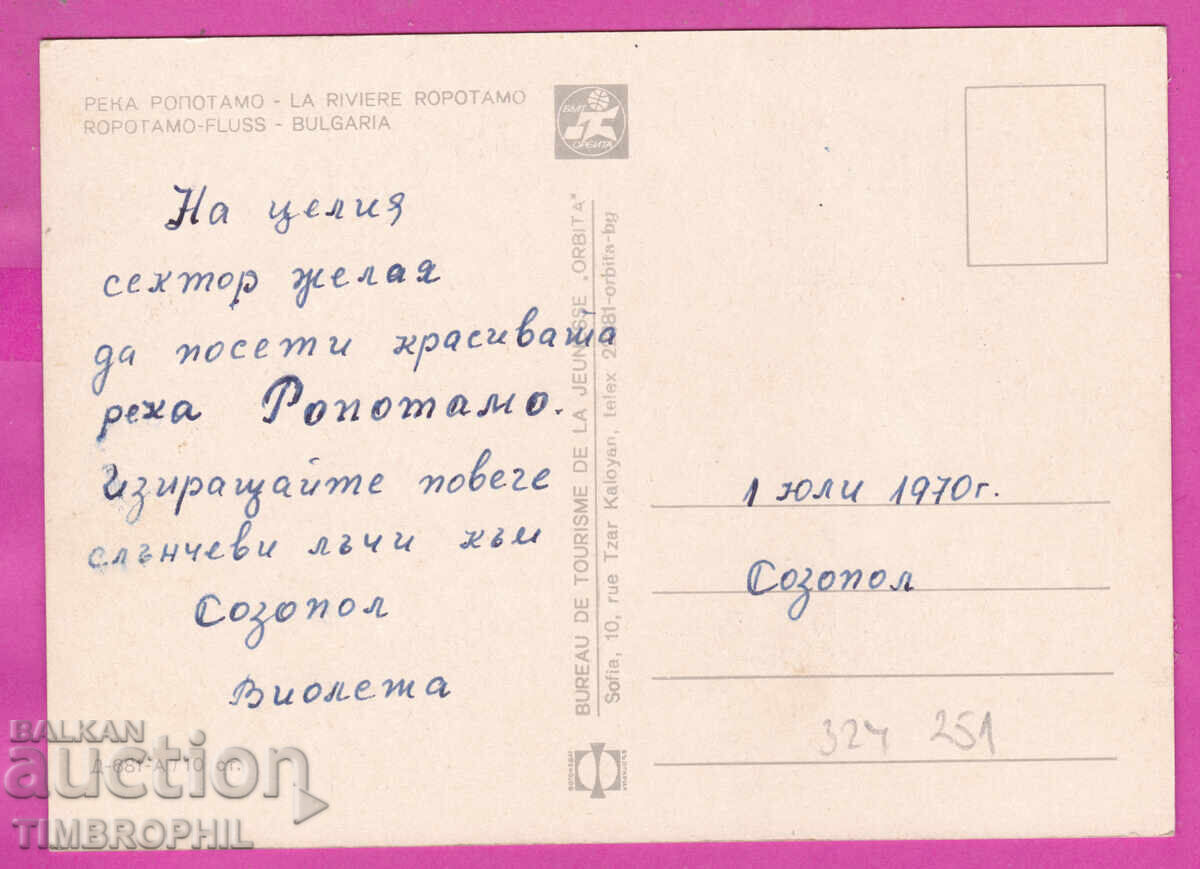 РЕКА РОПОТАМО - LA RIVIERE ROPOTAMO
ROPOTAMO-FLUSS - BULGARIA
БММТ
ОРБИТА
На целия
сектор желая
да посети красивата
река Ропотамо.
Изпращайте повече
слънчеви лъчи към
Созопол
Виолета
BUREAU DE TOURISME DE LA JEUNESSE „ORBITA"
Sofia, 10, rue Tzar Kaloyan, telex 22381-orbita-bg
1 юли 1970г.
Созопол
324 251
ФОТОИЗДАТ
БЪЛГАРИЯ
Д-681-А/10 ст.
BALKAN
auction
TIMBROPHIL